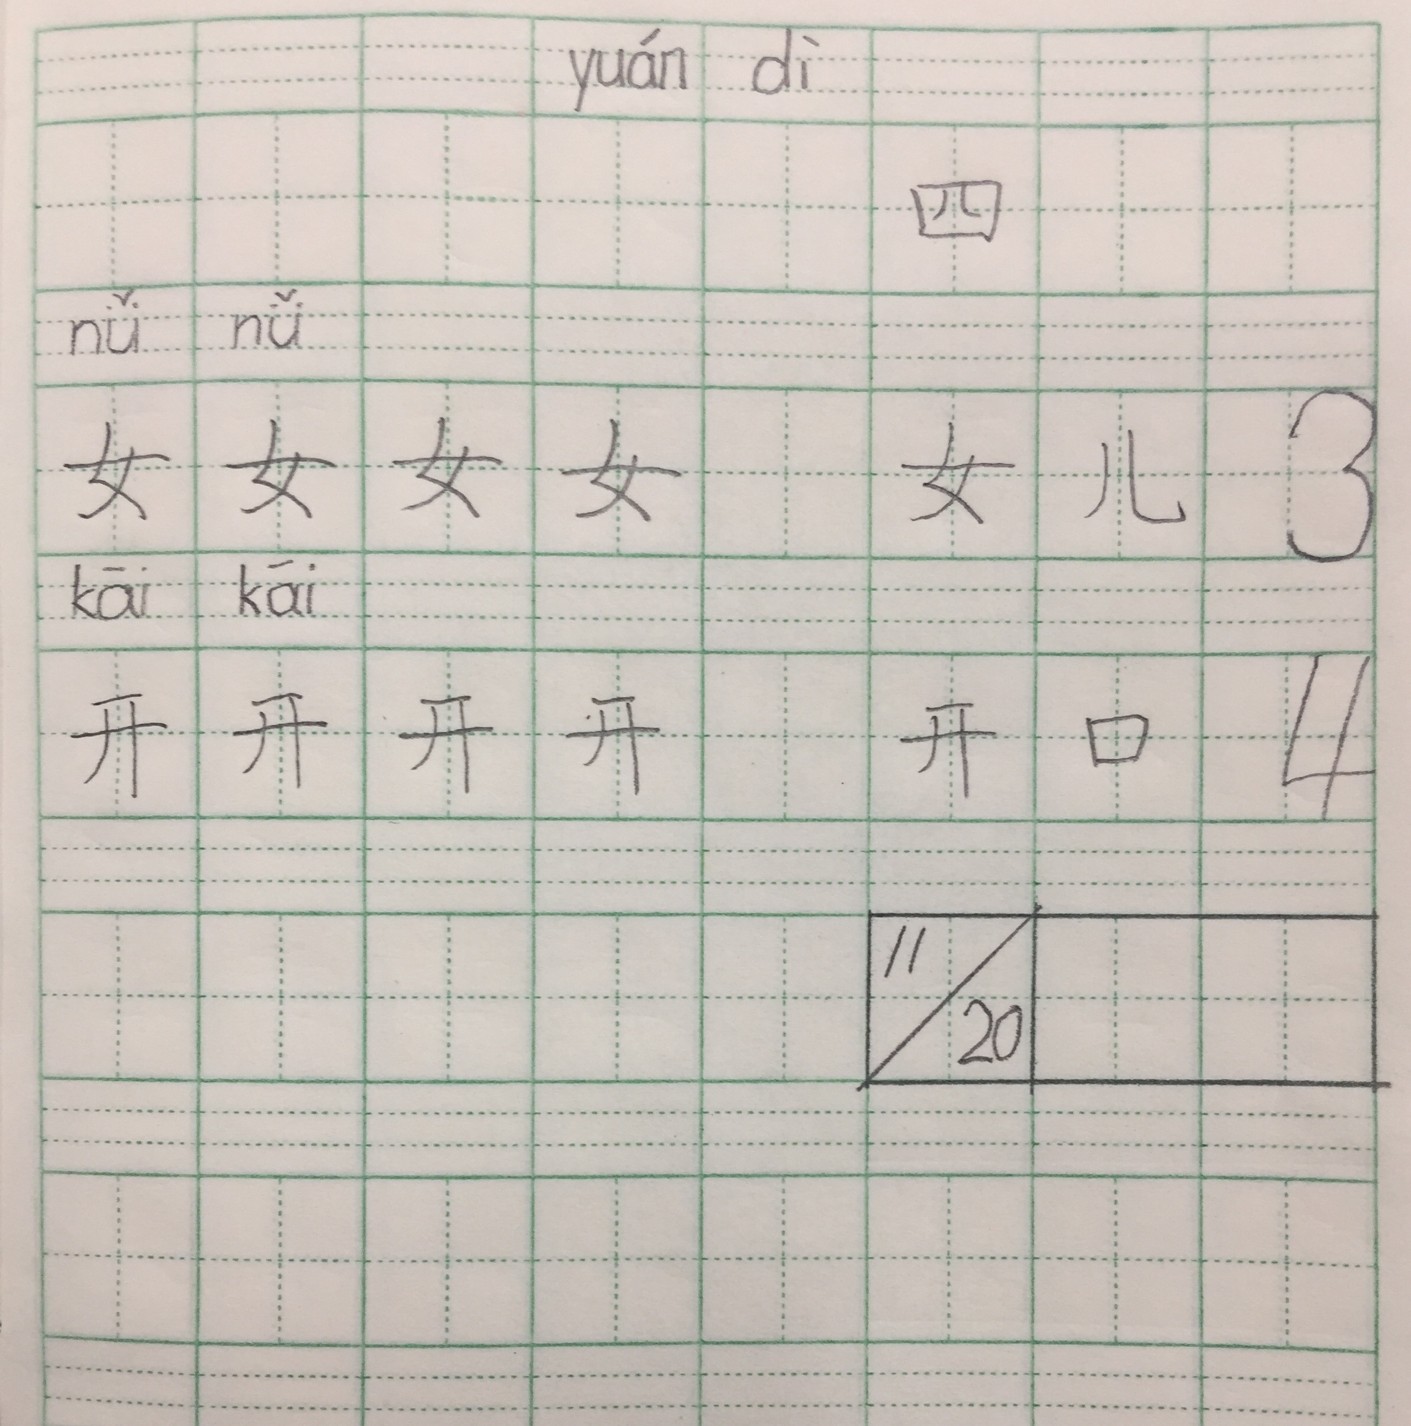 yuán dì
四
nǚ nǚ
女 女 女 女 女 儿 3
kāi kāi
开 开 开 开 开 口 4
11/20